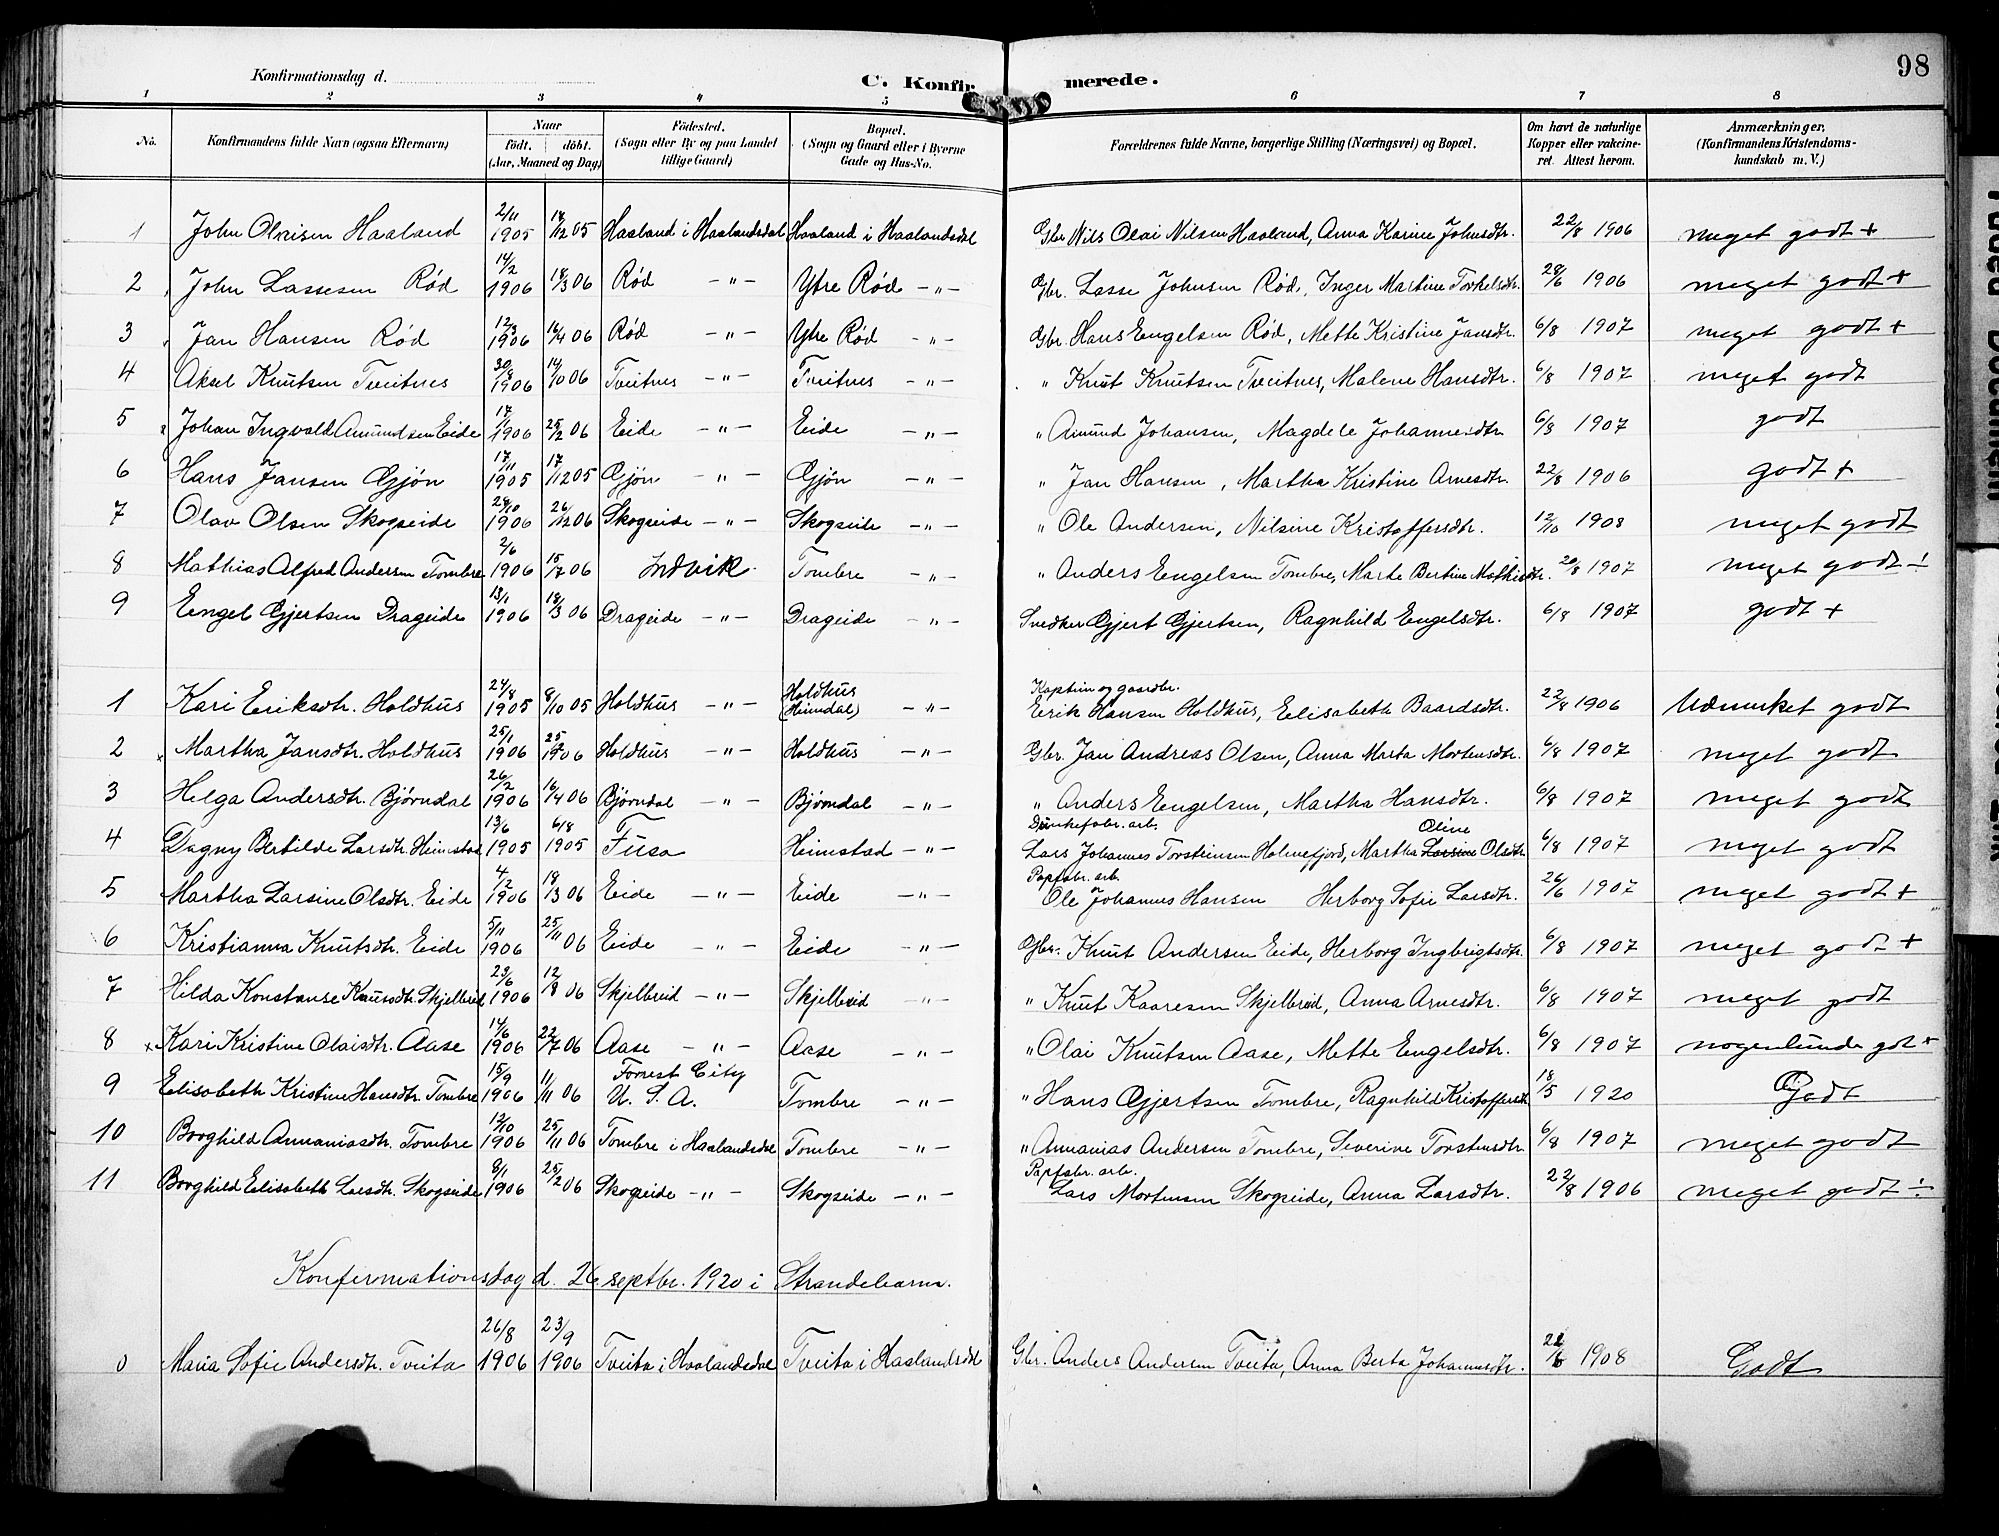 98
Konfirmationsdag d.
C. Konfirmerede.
1 2 3 4 5 6 7 8
No. Konfirmandens fulde Navn (ogsaa Efternavn) Naar født. døbt. (Aar, Maaned og Dag) Fødested. (Sogn eller By og paa Landet tillige Gaard) Bopæl. (Sogn og Gaard eller i Byerne Gade og Hus-No. Forældrenes fulde Navne, borgerlige Stilling (Næringsvei) og Bopæl. Om havt de naturlige Kopper eller vakcineret. Attest herom. Anmærkninger, (Konfirmandens Kristendomskundskab m. V.)
1 John Olaisen Haaland 2/11 1905 17/12 05 Haaland i Haalandsdal Haaland i Haalandsdal Gbr. Nils Olai Nilsen Haaland, Anna Karine Johnsdtr. 22/8 1906 meget godt +
2 John Lassesen Rød 14/2 1906 18/3 06 Rød -"- Ytre Rød -"- Gbr. Lasse Johnsen Rød, Inger Martine Torkelsdtr. 28/6 1906 meget godt +
3 Jan Hansen Rød 12/3 1906 16/4 06 Rød -"- Ytre Rød -"- Gbr. Hans Engelsen Rød, Mette Kristine Jansdtr. 6/8 1907 meget godt +
4 Aksel Knutsen Tveitnes 30/8 1906 14/10 06 Tveitnes -"- Tveitnes -"- " Knut Knutsen Tveitnes, Malene Hansdtr. 6/8 1907 meget godt
5 Johan Ingvald Amundsen Eide 17/1 1906 25/2 06 Eide -"- Eide -"- " Amund Johansen, Magdele Johannesdtr 6/8 1907 godt
6 Hans Jansen Gjøn 17/11 1905 17/12 05 Gjøn -"- Gjøn -"- " Jan Hansen, Martha Kristine Arnesdtr. 22/8 1906 godt +
7 Olav Olsen Skogseide 28/10 1906 26/12 06 Skogseide -"- Skogseide -"- " Ole Andersen, Nilsine Kristoffersdtr. 12/10 1908 meget godt
8 Mathias Alfred Andersen Tombre 2/6 1906 15/7 06 Indvik Tombre -"- " Anders Engelsen Tombre, Marte Bertine Mathisdtr. 20/8 1907 meget godt ÷
9 Engel Gjertsen Drageide 13/1 1906 18/3 06 Drageide -"- Drageide -"- Snedker Gjert Gjertsen, Ragnhild Engelsdtr. 6/8 1907 godt +
1 Kari Eriksdtr. Holdhus 24/8 1905 8/10 05 Holdhus -"- Holdhus (Heimdal) -"- Kaptein og gaardbr. Erik Hansen Holdhus, Elisabeth Baardsdtr. 22/8 1906 Udmerket godt
2 Martha Jansdtr. Holdhus 25/1 1906 25/2 1906 Holdhus -"- Holdhus -"- Gbr. Jan Andreas Olsen, Anna Marta Mortensdtr. 6/8 1907 meget godt
3 Helga Andersdtr. Bjørndal 26/2 1906 16/4 06 Bjørndal -"- Bjørndal -"- " Anders Engelsen, Martha Hansdtr. 6/8 1907 meget godt
4 Dagny Bertilde Larsdtr. Heimstad 13/6 1905 6/8 1905 Fusa Heimstad -"- arb. Lars Johannes Torsteinsen Holmefjord, Martha Larsine Oline Olsdtr 6/8 1907 meget godt
5 Martha Larsine Olsdtr. Eide 4/2 1906 18/3 06 Eide -"- Eide -"- Papfabr. arb. Ole Johannes Hansen Herborg Sofie Larsdtr. 26/6 1907 meget godt +
6 Kristianna Knutsdtr. Eide 5/11 1906 25/11 06 Eide -"- Eide -"- Gbr. Knut Andersen Eide, Herborg Ingbrigtsdtr. 6/8 1907 meget godt +
7 Hilda Konstanse Knutsdtr. Skjelbreid 23/6 1906 12/8 06 Skjelbreid -"- Skjelbreid -"- " Knut Kaaresen Skjelbreid, Anna Arnesdtr. 6/8 1907 meget godt
8 Kari Kristine Olaisdtr. Aase 14/6 1906 22/7 06 Aase -"- Aase -"- " Olai Knutsen Aase, Mette Engelsdtr. 6/8 1907 nogenlunde got +
9 Elisabeth Kristine Hansdtr. Tombre 15/9 1906 11/11 06 Forrest City U. S. A. Tombre -"- " Hans Gjertsen Tombre, Ragnhild Kristoffersdtr 18/5 1920 Godt
10 Borghild Annaniasdtr. Tombre 12/10 1906 25/11 06 Tombre i Haalandsdal Tombre -"- " Annanias Andersen Tombre, Severine Torstensdtr 6/8 1907 meget godt
11 Borghild Elisabeth Larsdtr. Skogseide 8/1 1906 25/2 06 Skogseide -"- Skogseide -"- Papfabr. arb. Lars Mortensen Skogseide, Anna Larsdtr. 22/8 1906 meget godt ÷
Konfirmationsdag d. 26 septbr. 1920 i Strandebarm.
0 Maria Sofie Andersdtr. Tveita 26/8 1906 23/9 1906 Tveita i Haalandsdal Tveita i Haalandsdal Gbr. Anders Andersen Tveita, Anna Berta Johannesdtr. 1908 Godt